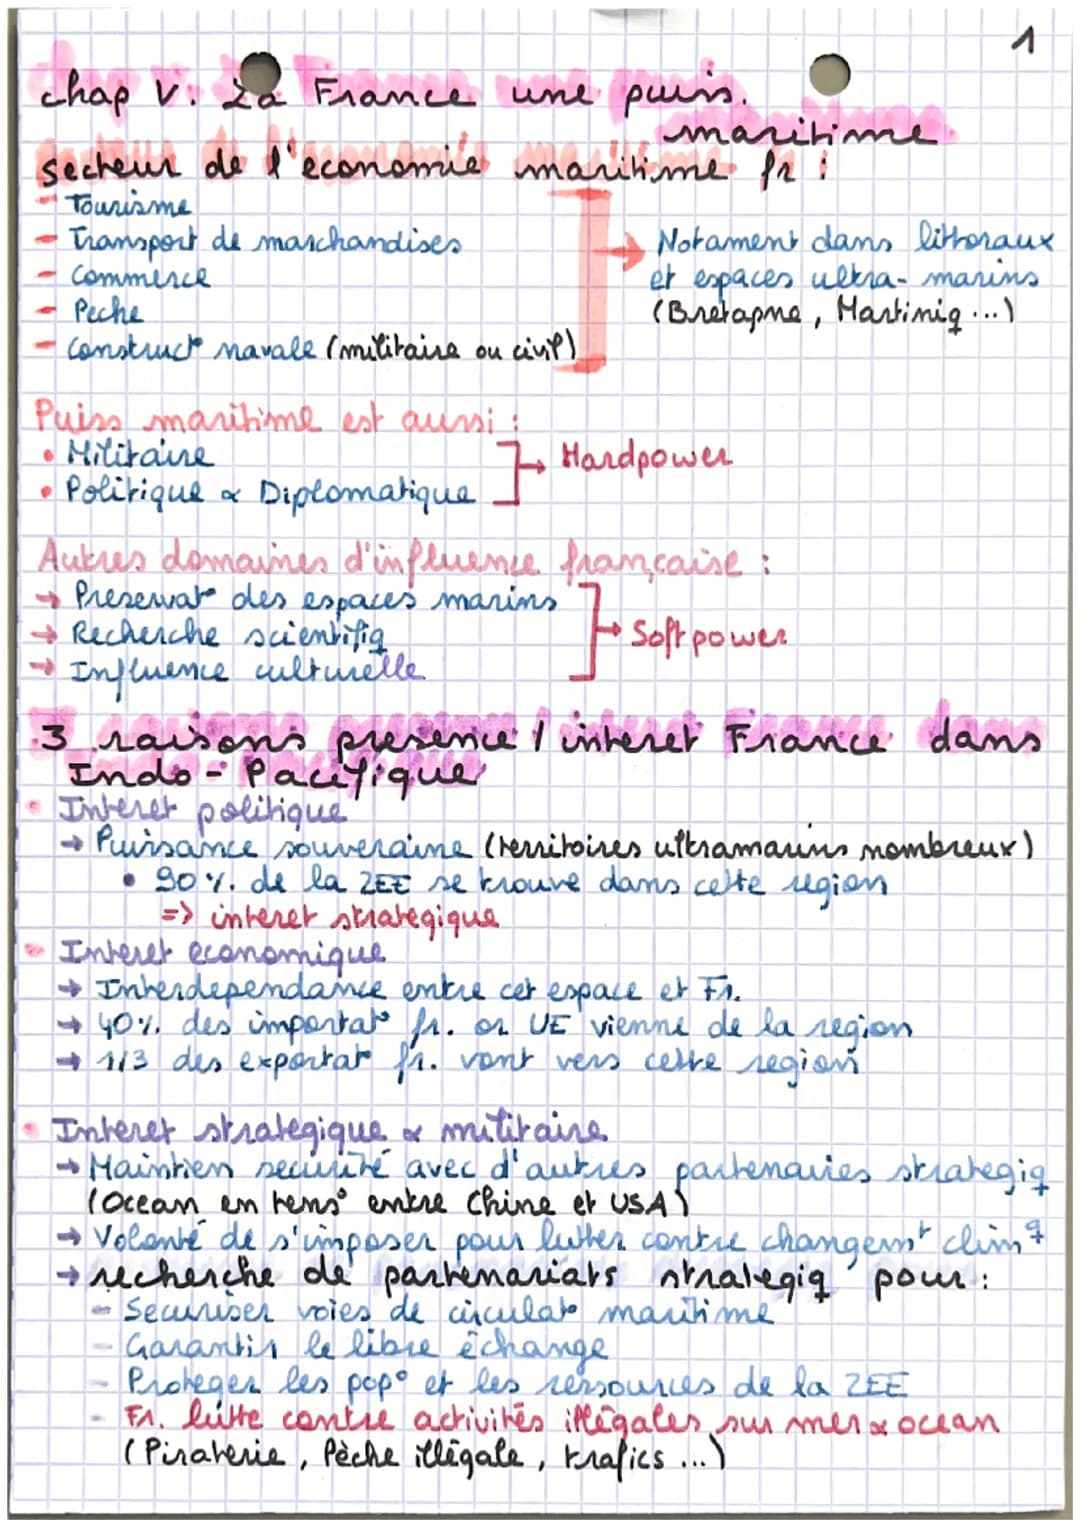 1
chap V. La France une puis.
maritime
secteur de l'economie maritime fr :
- Tourisme
- Transport de marchandises
- Commerce
- Peche
- Construct° navale (militaire ou civil)
→ Notament dans littoraux
et espaces ultra-marins
(Bretagne, Martiniq ...)
Puiss maritime est aussi :
• Militaire
• Politique & Diplomatique
→ Hardpower
Autres domaines d'influence française :
→ Preservat° des espaces marins
→ Recherche scientifiq
→ Influence culturelle
→ Softpower
3 raisons presence / interet France dans
Indo - Pacifique
• Interet politique
→ Puissance souveraine (territoires ultramarins nombreux)
• 90 % de la ZEE se trouve dans cette region
=> interet strategique
• Interet economique
→ Interdependance entre cet espace et Fr.
→ 40% des importat° fr. or UE vienne de la region
→ 1/3 des exportat° fr. vont vers cette region
• Interet strategique & militaire
→ Maintien securité avec d'autres partenaires strategiq
(Ocean en tens° entre Chine et USA)
→ Volonté de s'imposer pour lutter contre changemt climq
→ recherche de partenariats strategiq pour :
- Securiser voies de circulat° maritime
- Garantir le libre échange
- Proteger les pop° et les ressources de la ZEE
- Fr. lutte contre activités illégales sur mer & ocean
(Piraterie, Pèche illégale, trafics ...)